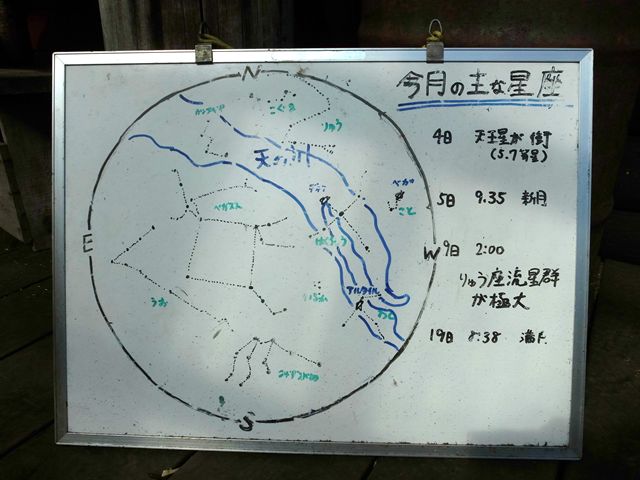 今月の主な星座
N
こぐま
りゅう
天の川
ベガ
こと
ペガスス
E
はくちょう
W
うお
アルタイル
わし
S
4日 天王星が衝
(5.7等星)
5日 9.35 新月
9日 2:00
りゅう座流星群
が極大
19日 8:38 満月